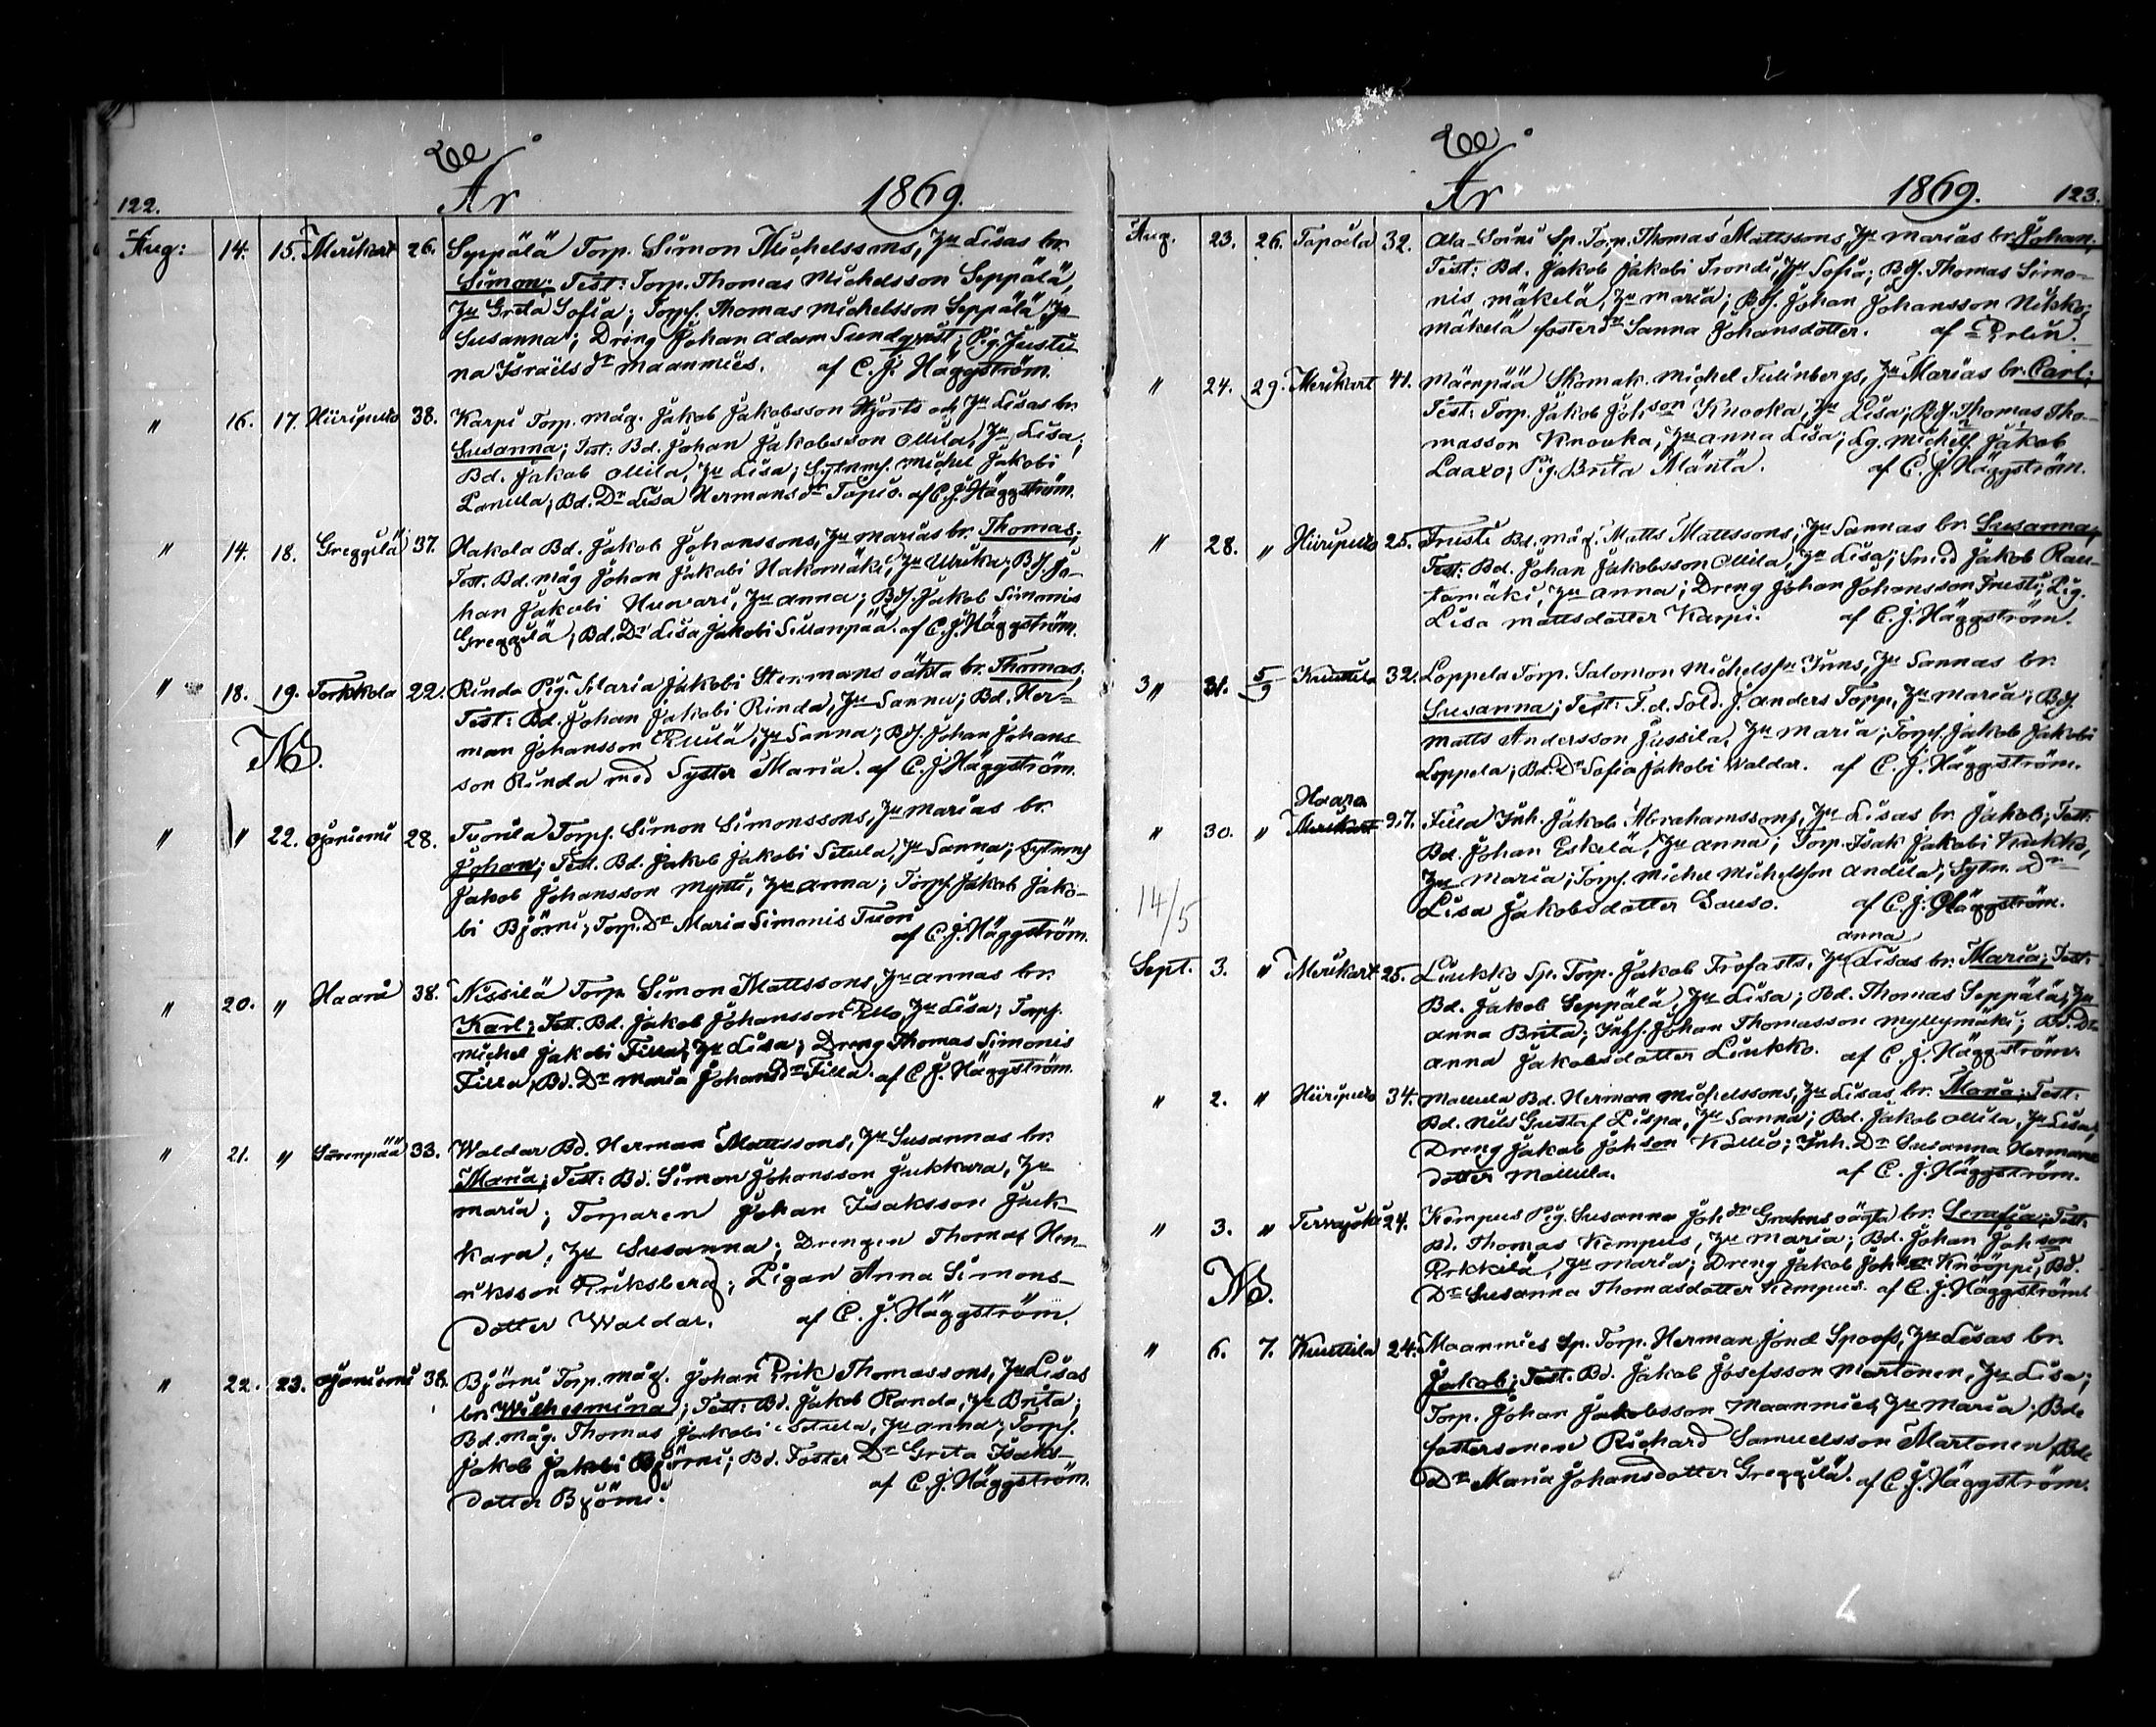 122.
År 1869.
Aug: 14. 15. Merikart 26. Seppälä Torp. Simon Michelssons, Hu Lisas br.
Simon; Test: Torp. Thomas Michelsson Seppälä,
Hu Greta Sofia; Torps. Thomas Michelsson Seppälä, Hu
Susanna; Dräng Johan Adam Sundqvist; Pig. Justi-
na Israels dr Maanmies. af C. J. Häggström.
" 16. 17. Hiiripelto 38. Karpi Torp. måg. Jakob Jakobsson Hjorts och Hu Lisas br.
Susanna; Test: Bd. Johan Jakobsson Ollila, Hu Lisa;
Bd. Jakob Ollila, Hu Lisa; Sytnms. Michel Jakobi
Panula; Bd. Dr Lisa Hermans dr Tapio. af C. J. Häggström.
" 14. 18. Greggilä 37. Hakola Bd. Jakob Johanssons, Hu Marias br. Thomas;
Test. Bd. måg Johan Jakobi Hakomäki, Hu Ulrika; BdS. Jo-
han Jakobi Huvari, Hu Anna; BdS. Jakob Simonis
Greggilä; Bd. Dr Lisa Jakobi Sillanpää. af C. J. Häggström.
" 18. 19. Torkkola 22. Rinda Pig. Maria Jakobi Stenmans oäkta br. Thomas;
Test: Bd. Johan Jakobi Rinda, Hu Sanna; Bd. Her-
man Johansson Rillilä, Hu Sanna; BdS. Johan Johans-
son Rinda med Syster Maria. af C. J. Häggström.
NB.
" " 22. Ojaniemi 28. Tuorila Torps. Simon Simonssons, Hu Marias br.
Johan; Test. Bd. Jakob Jakobi Setula, Hu Sanna; Sytnms
Jakob Johansson Myntti, Hu Anna; Torps. Jakob Jako-
bi Björni; Torp. Dr Maria Simonis Tuori
af C. J. Häggström.
" 20. " Haaru 38. Nissilä Torp. Simon Mattssons, Hu Annas br.
Karl; Test. Bd. Jakob Johansson Ello, Hu Lisa; Torps.
Michel Jakobi Filla, Hu Lisa; Dreng Thomas Simonis
Filla; Bd. Dr Maria Johans Dr Filla. af C. J. Häggström.
" 21. " Särenpää 33. Waldar Bd. Herman Mattssons, Hu Susannas br.
Maria; Test: Bd. Simon Johansson Jukkara, Hu
Maria; Torparen Johan Isaksson Juk-
kara, Hu Susanna; Drengen Thomas Hen-
riksson Eriksberg; Pigan Anna Simons-
dotter Waldar. af C. J. Häggström.
" 22. 23. Ojaniemi 38. Björni Torp. måg. Johan Erik Thomassons, Hu Lisas
br. Wilhelmina; Test: Bd. Jakob Randa, Hu Brita;
Bd. måg. Thomas Jakobi Setula, Hu Anna; Torps.
Jakob Jakobi Björni; Bd. Foster Dr Greta Isaks-
dotter Björni. af C. J. Häggström.
År 1869. 123.
Aug. 23. 26. Tapoila 32. Ala-Soini Sp. Torp. Thomas Mattssons, Hu Marias br. Johan;
Test: Bd. Jakob Jakobi Trondi, Hu Sofia; BdS. Thomas Simo-
nis Mäkelä, Hu Maria; BdS. Johan Johansson Nikko;
Mäkelä foster dr Sanna Johansdotter. af Erlin.
" 24. 29. Merikart 41. Mäenpää Skomak. Michel Tulinbergs, Hu Marias br. Carl;
Test: Torp. Jakob Johson Knooka, Hu Lisa; BdS. Thomas Tho-
masson Knooka, Hu Anna Lisa; Lg. Michel Jakob
Laaxo; Pig. Brita Mäntä. af C. J. Häggström.
" 28. " Hiiripelto 25. Frusti Bd. måg. Matts Mattssons, Hu Sannas br. Susanna;
Test: Bd. Johan Jakobsson Ollila, Hu Lisa; Smed Jakob Rau-
tamäki, Hu Anna; Dreng Johan Johansson Frusti; Pig.
Lisa Mattsdotter Karpi. af C. J. Häggström.
3 " 31. 5/9 Kuuttila 32. Loppela Torp. Salomon Michelsson Inns, Hu Sannas br.
Susanna; Test: F.d. Sold. J. Anders Topp, Hu Maria; BdS.
Matts Andersson Jussila, Hu Maria; Torps. Jakob Jakobi
Loppela; Bd. Dr Sofia Jakobi Waldar. af C. J. Häggström.
Haaro
" 30. " Merikart 27. Filla Inh. Jakob Abrahamssons, Hu Lisas br. Jakob; Test.
Bd. Johan Eskelä, Hu Anna; Torp. Isak Jakobi Kukko,
Hu Maria; Torps. Michel Michelsson Andila; Sytn. Dr
Lisa Jakobsdotter Sauso. af C. J. Häggström.
14/5
anna
Sept. 3. " Merikart 25. Liukko Sp. Torp. Jakob Trofasts, Hu Lisas br. Maria; Test:
Bd. Jakob Seppälä, Hu Lisa; Bd. Thomas Seppälä, Hu
Anna Brita; Inhs. Johan Thomasson Myllymäki; Bd. Dr
Anna Jakobsdotter Liukko. af C. J. Häggström.
" 2. " Hiiripelto 34. Mallula Bd. Herman Michelssons, Hu Lisas br. Maria; Test:
Bd. Nils Gustaf Lispa, Hu Sanna; Bd. Jakob Ollila, Hu Lisa;
Dreng Jakob Johson Kallio; Inh. Dr Susanna Hermans
dotter Mallula. af C. J. Häggström.
" 3. " Tervajoki 24. Kempus Pig. Susanna Joh dr Grahns oägta br. Serafia; Test.
Bd. Thomas Kempus, Hu Maria; Bd. Johan Johson
Erkkilä, Hu Maria; Dreng Jakob Johson Knööppi; Bd.
Dr Susanna Thomasdotter Kempus. af C. J. Häggström.
NB.
" 6. 7. Kuuttila 24. Maanmies Sp. Torp. Herman Jond Spoofs, Hu Lisas br.
Jakob; Test. Bd. Jakob Josefsson Martonen, Hu Lisa;
Torp. Johan Jakobsson Maanmies, Hu Maria; Bde
fostersonen Richard Samuelsson Martonen, Bde
Dr Maria Johansdotter Greggilä. af C. J. Häggström.